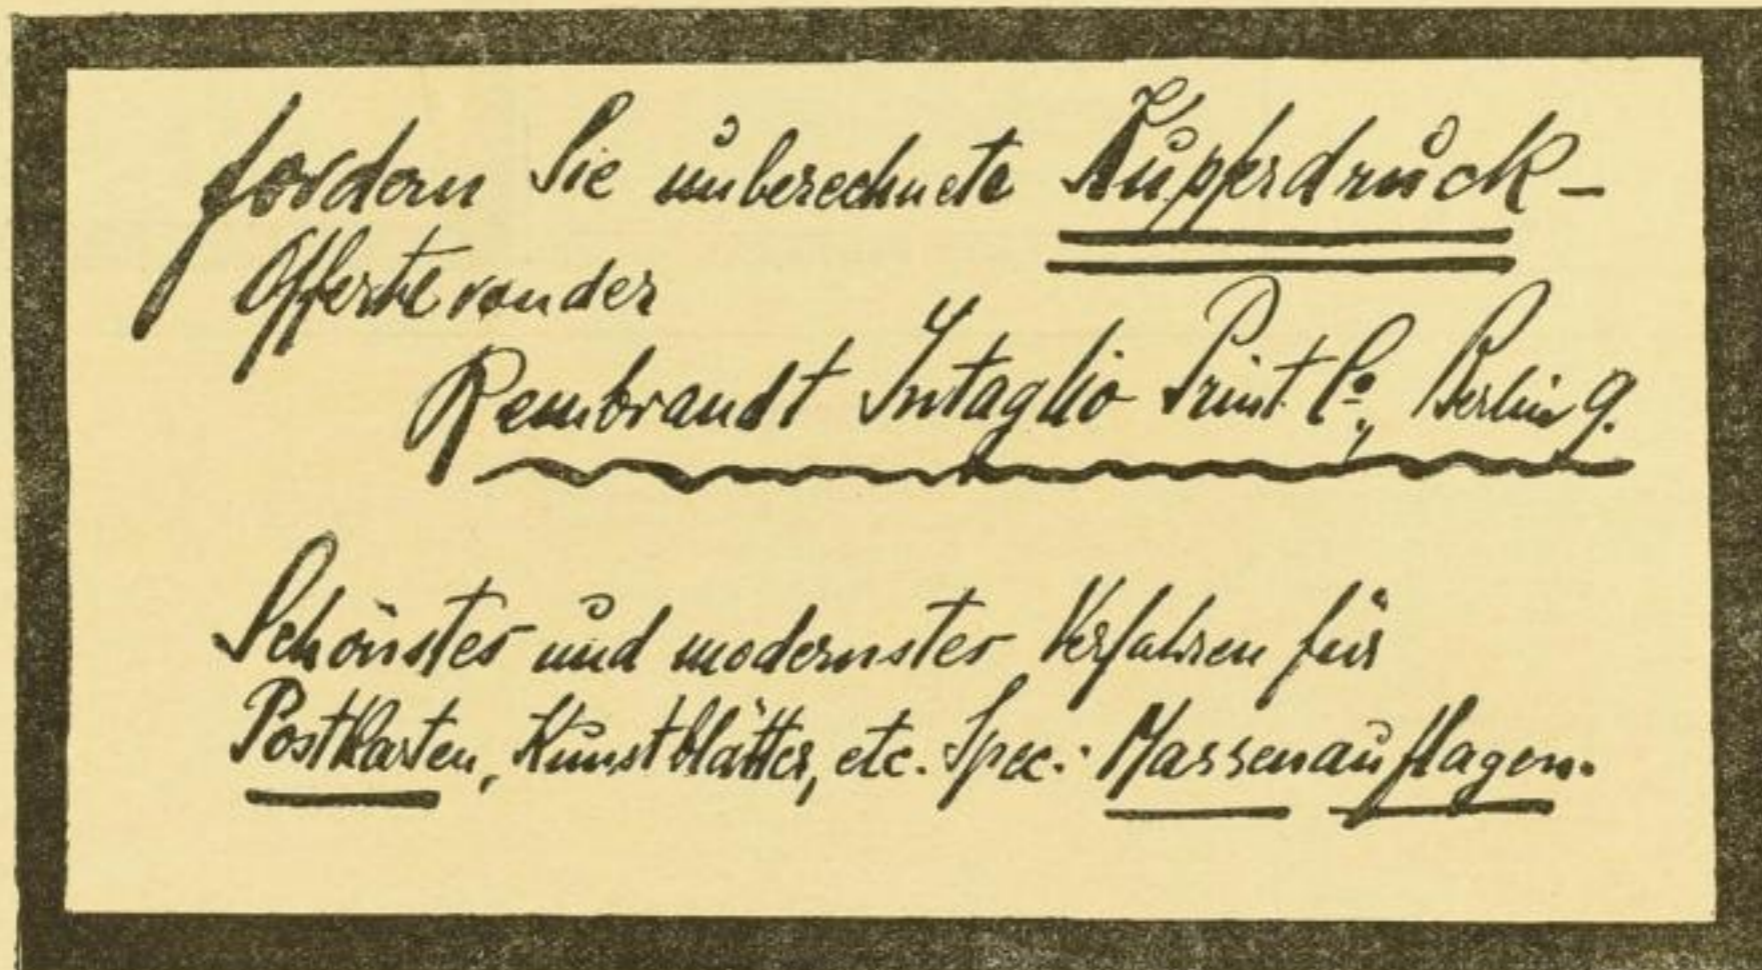 fordern Sie unberechnete Kupferdruck-
Offerte von der
Rembrandt Intaglio Print. Co., Berlin 9.
Schönstes und modernstes Verfahren für
Postkarten, Kunstblätter, etc. Spec.: Massenauflagen.